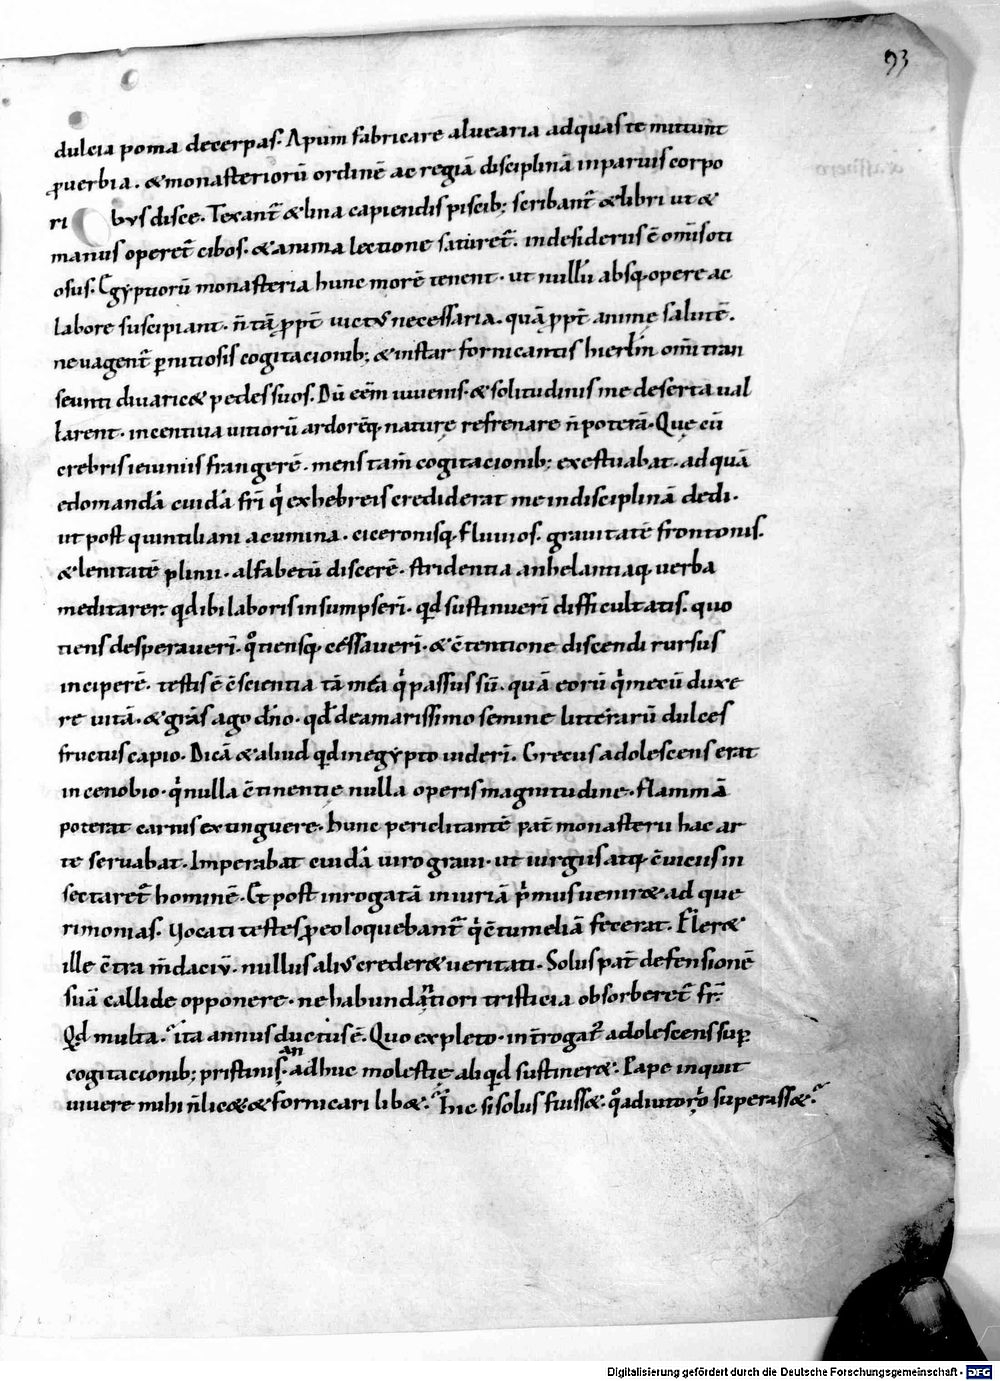 93
dulcia poma decerpas. Apum fabricare aluearia adquas te mittunt
ꝓuerbia. &monasteriorũ ordinẽ ac regiã disciplinã inparuis corpo
ri bus disce. Texant᷑ &lina capiendis piscib; scribant᷑ &libri ut &
manus operet᷑ cibos. &anima lectione saturet᷑. indesideriis ẽ om̃is oti
osus. Egyptiorũ monasteria hunc morẽ tenent. ut nullũ absq; opere ac
labore suscipiant. ñ tã ꝓpt̃ uictꝰ necessaria. quã ꝓpt̃ animę salutẽ.
ne uagent᷑ ꝑnitiosis cogitacionib; &instar fornicantis hierlm̃ om̃i tran
seunti diuaric& pedes suos. Dũ eẽm iuuenis. & solitudinis me deserta ual
larent. incentiua uitiorũ ardorẽq; naturę refrenare ñ poterã. Quę cũ
crebris ieiuniis frangerẽ. mens tam̃ cogitacionib; exestuabat. ad quã
edomandã cuidã fr̃i q̾ exhebreis crediderat me indisciplinã dedi.
ut post quintiliani acumina. ciceronisq; fluuios. grauitatẽ frontonis.
&lenitatẽ plinii. alfabetũ discerẽ. stridentia anhelantiaq; uerba
meditarer. qd ibi laboris insumpserĩ. qd sustinuerĩ difficultatis. quo
tiens desperauerĩ. q̊tiensq; cessauerĩ. &c̃tentione discendi rursus
inciperẽ. testis ẽ c̃scientia tã mea q̾ passus sũ. quã eorũ q̾ mecũ duxe
re uitã. &gr̃as ago dñο. qd deamarissimo semine litterarũ dulces
fructus capio. Dicã &aliud qd inegypto uiderĩ. Grecus adolescens erat
in cenobio. q̾ nulla c̃tinentie nulla operis magnitudine. flammã
poterat carnis extinguere. Hunc periclitantẽ pat̃ monasterii hac ar
te seruabat. Imperabat cuidã uiro graui. ut iurgiis atq; c̃uiciis in
sectaret᷑ hominẽ. Et post inrogatã iniuriã p̾mus uenir& ad que
rimonias. Vocati testes ꝓ eo loquebant᷑ q̾ c̃tumeliã fecerat. Fler&
ille c̃tra m̃daciũ. nullus aliꝰ creder& ueritati. Solus pat̃ defensionẽ
suã callide opponere. ne habundãtiori tristicia obsorberet᷑ fr̃.
Qd multa. ita annus ductus ẽ. Quo expleto. int̃rogat᷑ adolescens suꝑ
cogitacionib; pristinis. an adhuc molestię aliqd sustiner&. Pape inquit
uiuere mihi ñ lic& & fornicari lib&. Hic si solus fuiss&. q̊ adiutorio superass&.
Digitalisierung gefördert durch die Deutsche Forschungsgemeinschaft - DFG